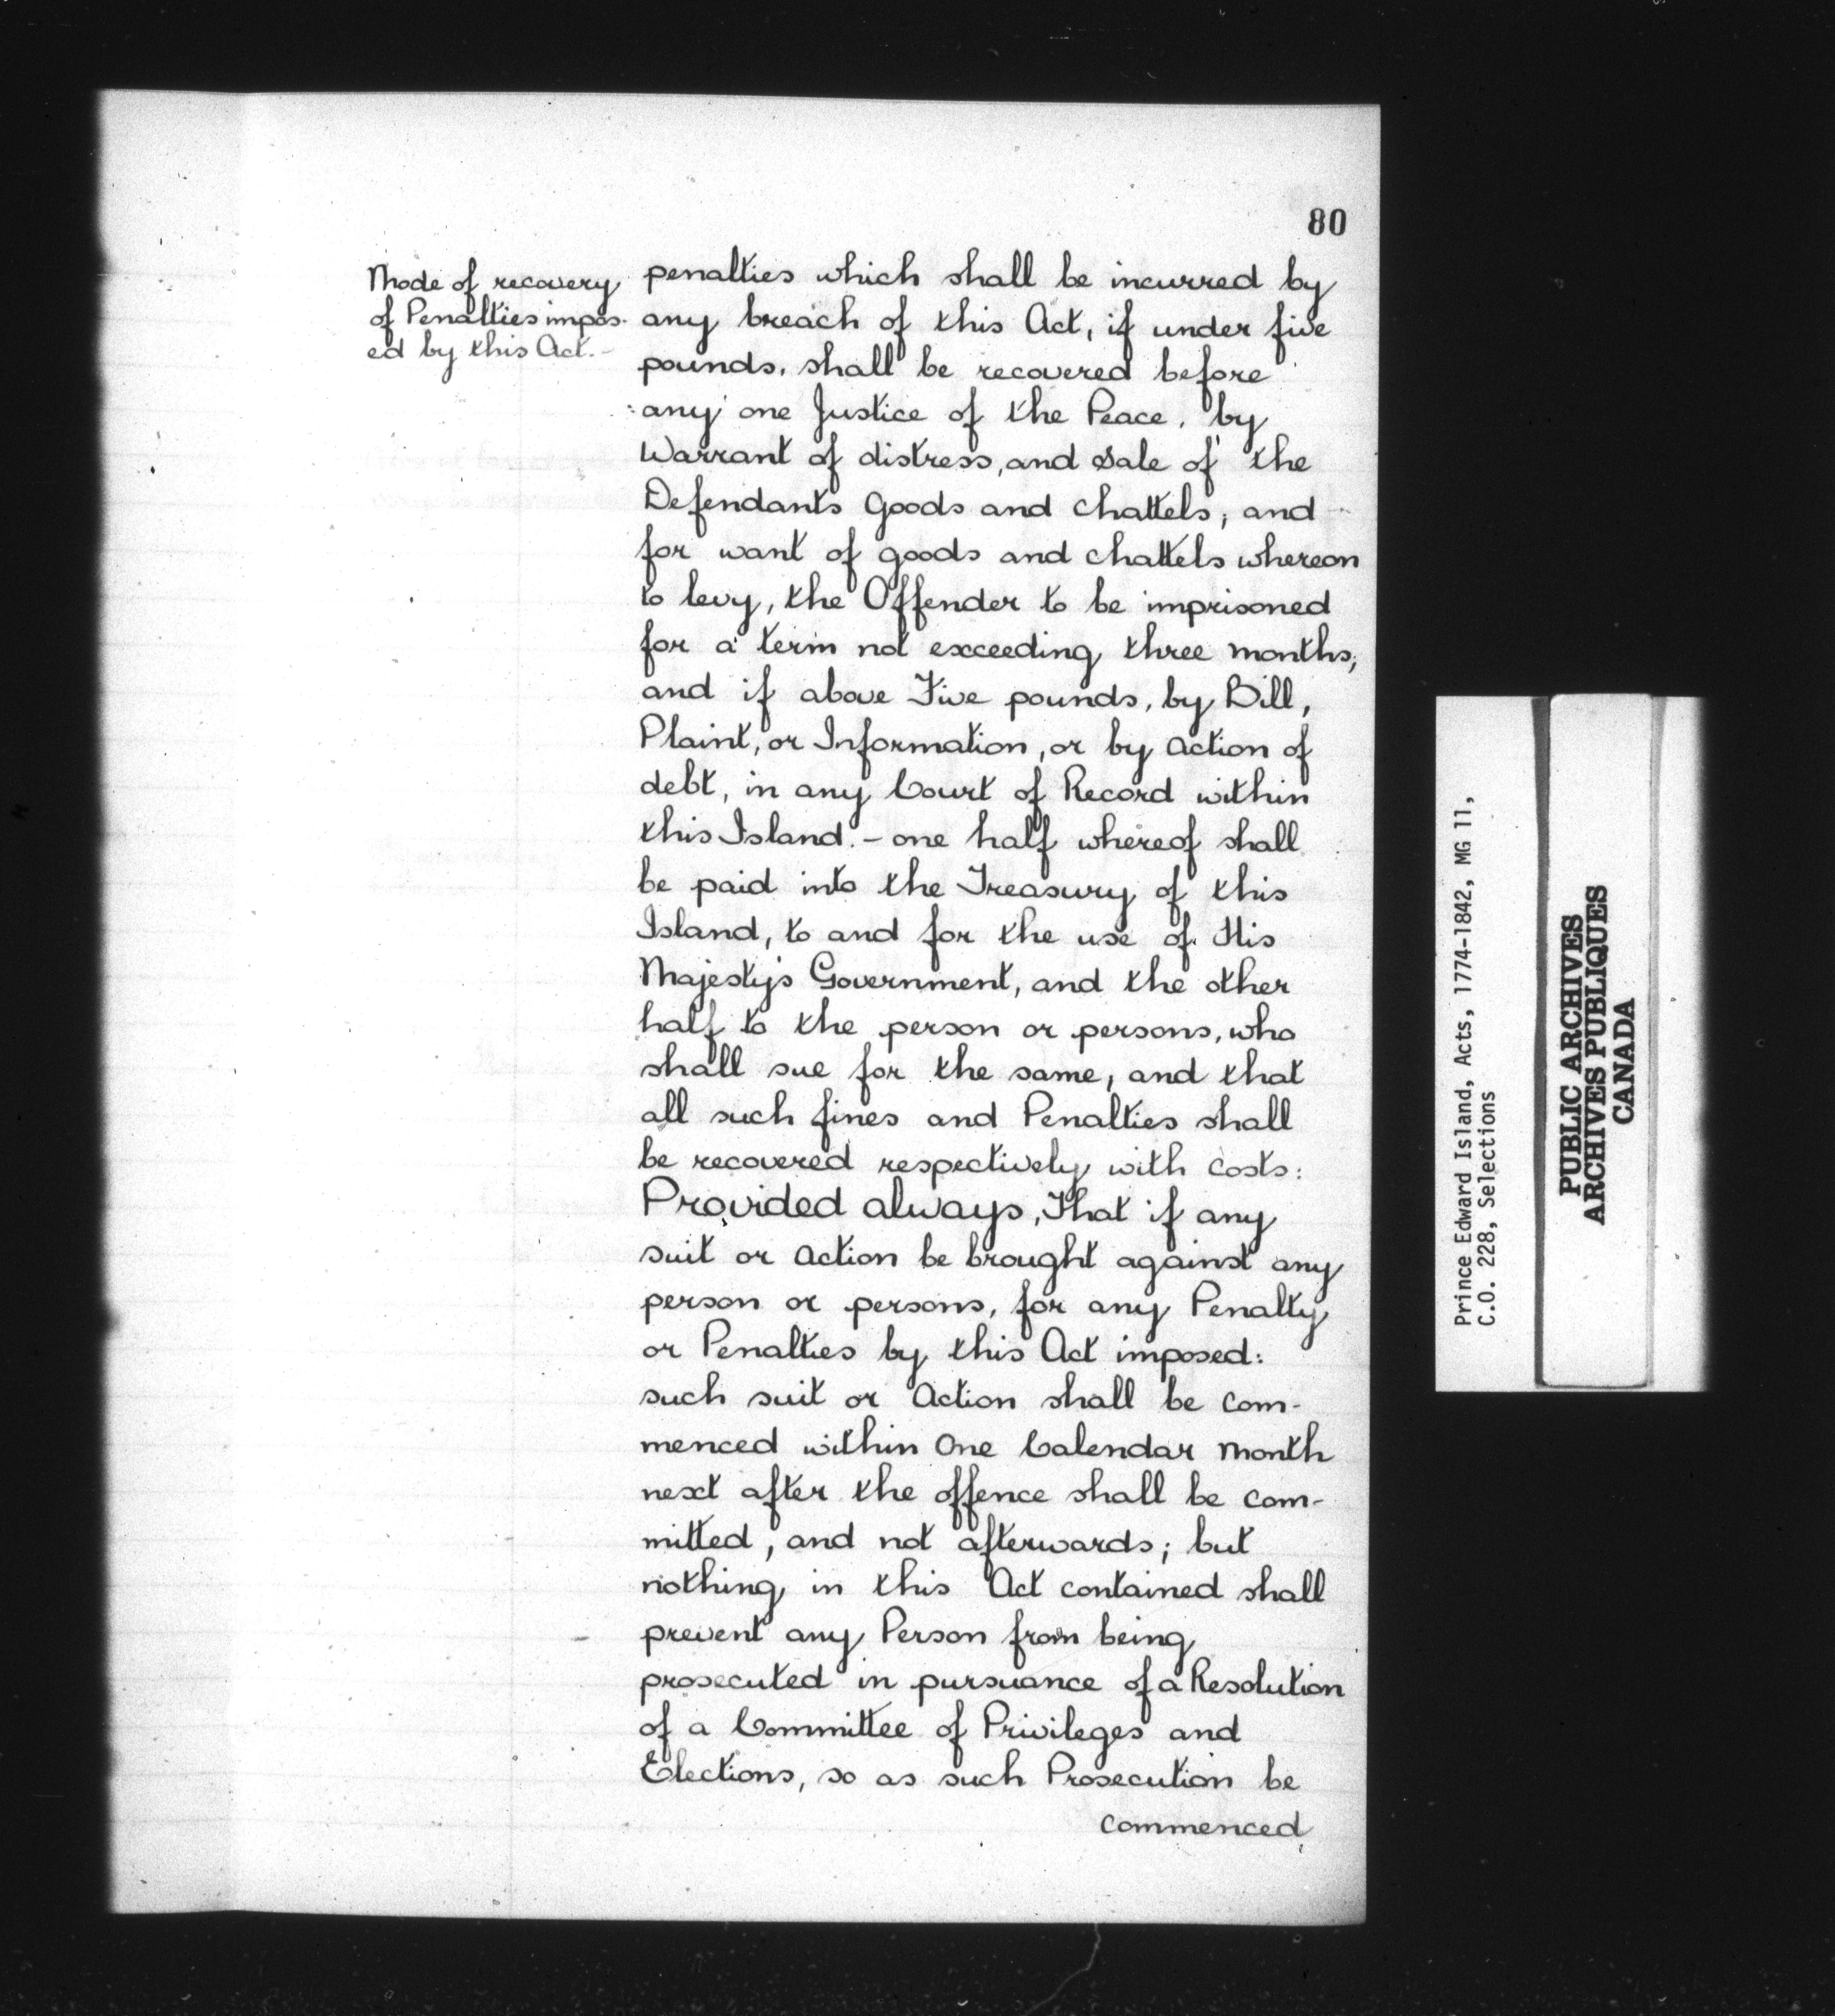 80
Mode of recovery
of Penalties impos-
ed by this Act.-
penalties which shall be incurred by
any breach of this Act, if under five
pounds, shall be recovered before
any one Justice of the Peace, by
Warrant of distress, and Sale of the
Defendants Goods and Chattels; and
for want of goods and chattels whereon
to levy, the Offender to be imprisoned
for a term not exceeding three months;
and if above Five pounds, by Bill,
Plaint, or Information, or by action of
debt, in any Court of Record within
this Island.- one half whereof shall
be paid into the Treasury of this
Island, to and for the use of His
Majesty's Government, and the other
half to the person or persons, who
shall sue for the same, and that
all such fines and Penalties shall
be recovered respectively with costs:
Provided always, That if any
suit or action be brought against any
person or persons, for any Penalty
or Penalties by this Act imposed:
such suit or Action shall be com-
menced within One Calendar Month
next after the offence shall be com-
mitted, and not afterwards; but
nothing in this Act contained shall
prevent any Person from being
prosecuted in pursuance of a Resolution
of a Committee of Privileges and
Elections, so as such Prosecution be
commenced
Prince Edward Island, Acts, 1774-1842, MG 11,
C.O. 228, Selections
PUBLIC ARCHIVES
ARCHIVES PUBLIQUES
CANADA